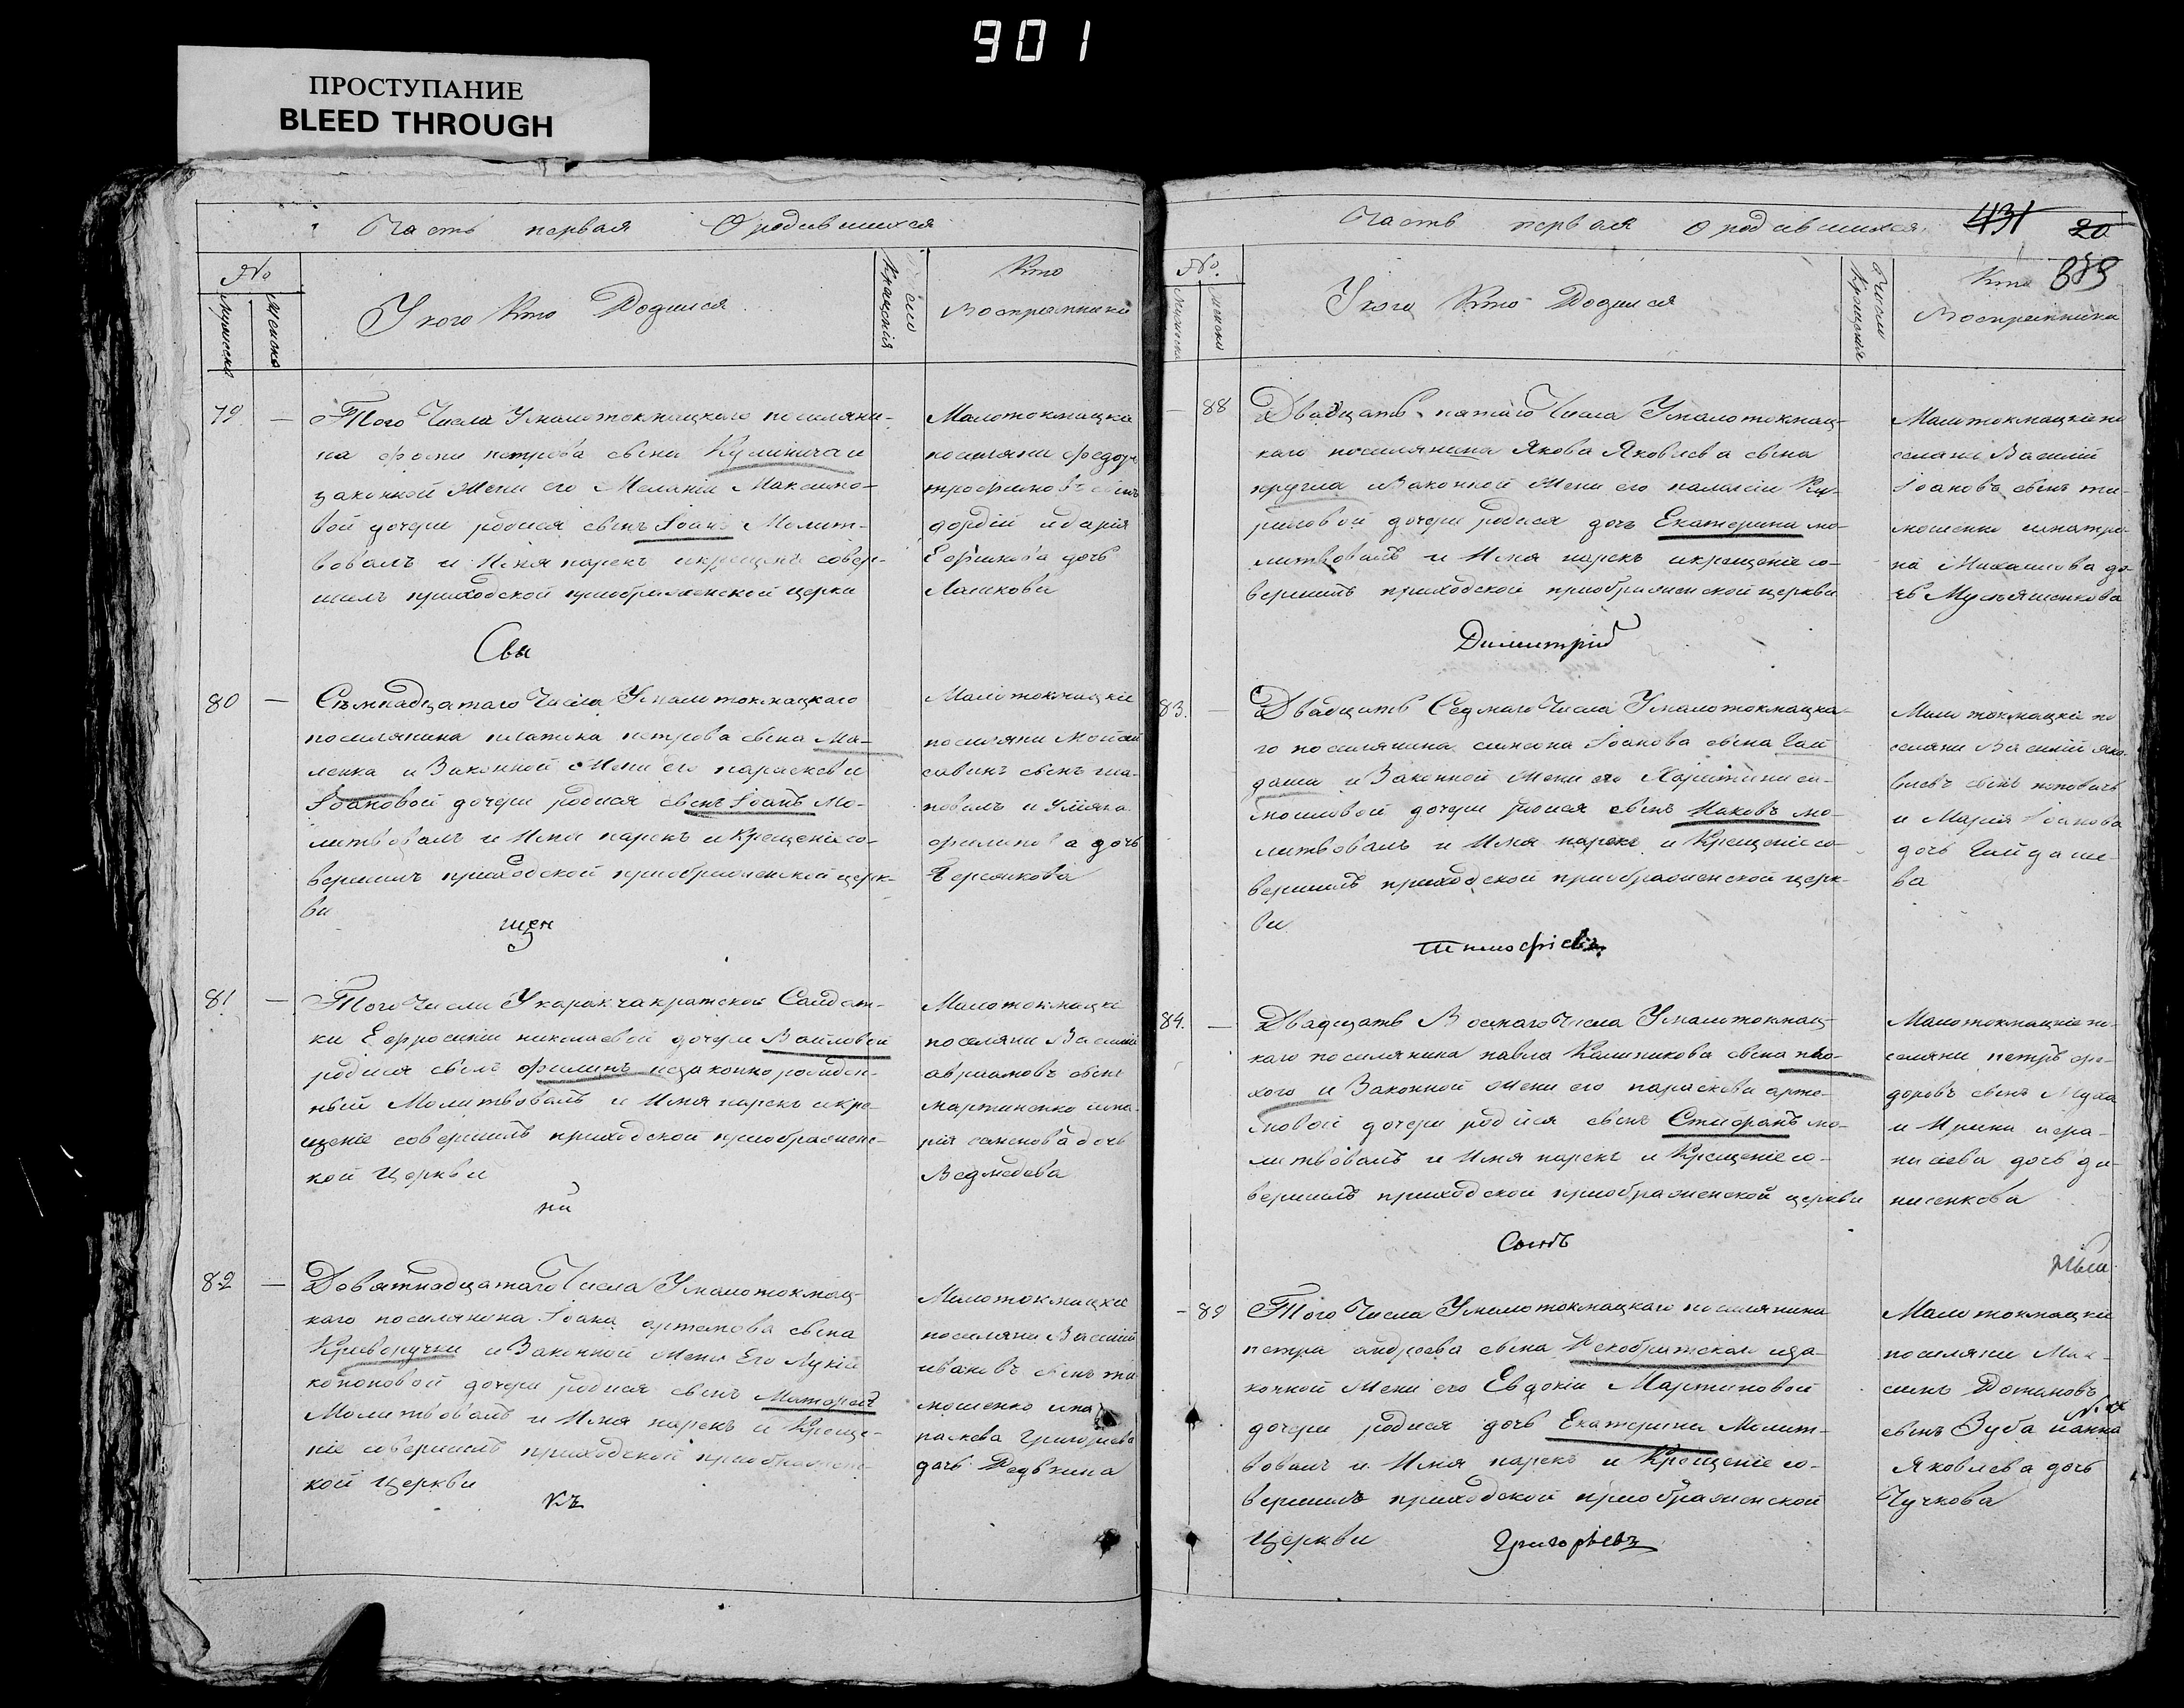 901
ПРОСТУПАНИЕ
BLEED THROUGH
Часть первая О родившихся
№
Мужеска
Женска
У кого Кто Родился
Число Крещенія
Кто
Восприемники
79 —
Того Числа У малотокмацкаго поселяни-
на фомы петрова сына Кулинича и
законной Жены его Меланіи Максимо-
вой дочери родися сынъ Іоанъ Молит-
вовалъ и Имя нарекъ и крещеніе совер-
шилъ приходской приображенской церкви
Малотокмацкіе
поселяни федоръ
трофимовъ сынъ
гордій и дарія
Ефимова дочь
Лашкова
Свя
80 —
Съмнадцатаго Числа У малотокмацкаго
поселянина платона петрова сына Ма-
ленка и Законной Жены его параскевы
Іоановой дочери родися сынъ Іоанъ Мо-
литвовалъ и Имя нарекъ и Крещеніе со-
вершилъ приходской приображенской церк-
ви
Малотокмацкіе
поселяни Мойсей
савинъ сынъ ша-
повалъ и Уліяна
филипова дочь
щен
81 —
Того Числа У каракчакратской Солдат-
ки Ефросиніи николаевой дочери Воиловой
родися сынъ филипъ незаконнорожден-
ный Молитвовалъ и Имя нарекъ и кре-
щеніе совершилъ приходской приображенс-
кой Церкви
Малотокмацкіе
поселяни Василій
авраамовъ сынъ
мартиненко и ма-
рія семенова дочь
Ведмедева
ни
82 —
Девятнадцатаго Числа У малотокмац-
каго поселянина Іоана артемова сына
Криворучки и Законной Жены Его Лукіи
кононовой дочери родися сынъ Матфей
Молитвовалъ и Имя нарекъ и Креще-
ніе совершилъ приходской приображенс-
кой Церкви
Малотокмацкіе
поселяни Василій
ивановъ сынъ ти-
мошенко и па-
раскева Григориева
дочь Редькина
къ
Часть первая О родившихся
431
20
№
Мужеска
Женска
У кого Кто Родился
Число Крещенія
Кто
Восприемники
— 88
Двадцать пятаго Числа У малотокмац-
каго поселянина Якова Яковлева сына
кругла и Законной Жены его палагіи Ки-
риловой дочери родися дочь Екатерина мо-
литвовалъ и Имя нарекъ и крещеніе со-
вершилъ приходской приображенской церкви
Малотокмацкіе по-
селяни Василій
Іоановъ сынъ ти-
мошенко и матро-
на Михаилова до-
чь
Димитрій
83. —
Двадцать Седмаго Числа У малотокмацка-
го поселянина симеона Іоанова сына Гай
даша и Законной Жены его Харитины си-
моновой дочери родися сынъ Иаковъ мо-
литвовалъ и Имя нарекъ и Крещеніе со-
вершилъ приходской приображенской церк-
ви
Малотокмацкіе по
селяни Василій яко-
влевъ сынъ поповичь
и Марія Іоанова
дочь Гайдаше-
ва
Тимофіевъ
84. —
Двадцать Восмаго Числа У малотокмац-
каго поселянина павла Калиникова сына пло-
хого и Законной Жены его параскевы арте-
мовой дочери родися сынъ Стефанъ мо-
литвовалъ и Имя нарекъ и Крещеніе со-
вершилъ приходской приображенской церкви
Малотокмацкіе по-
селяни петръ фе-
доровъ сынъ Муха
и Ирина афа-
насиева дочь де-
нисенкова
— 89
Того Числа У малотокмацкаго поселянина
петра андреева сына и за-
конной Жены его Евдокіи Мартиновой
дочери родися дочь Екатерина Молит-
вовалъ и Имя нарекъ и Крещеніе со-
вершилъ приходской приображенской
Церкви
Малотокмацкіе
поселяни Мак-
симъ Романовъ
сынъ Зуба и анна
Яковлева дочь
Чучкова
Григоріевъ